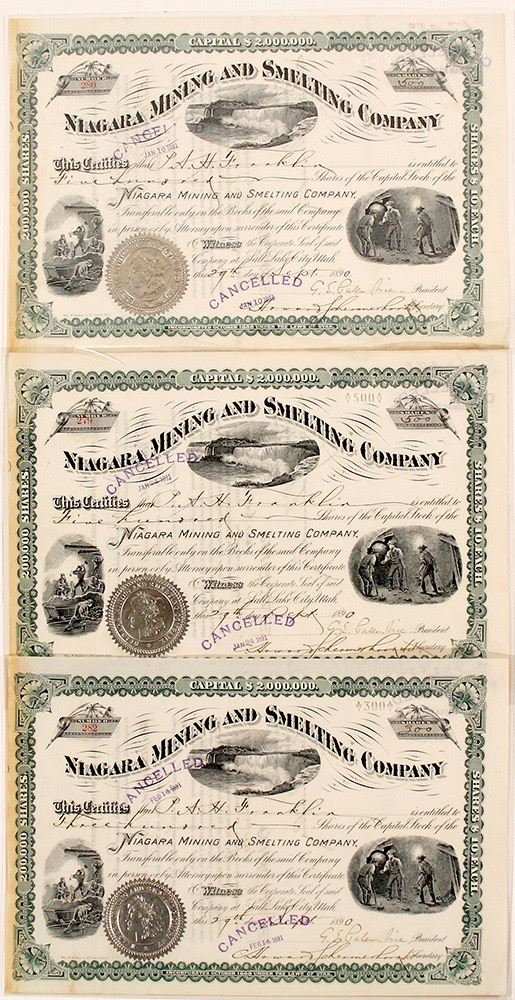 CAPITAL $ 2,000,000.
NUMBER
280
SHARES
500
NIAGARA MINING AND SMELTING COMPANY
CANCELLED
JAN 10 1891
This Certifies that P. A. H. Franklin is entitled to
Five hundred Shares of the Capital Stock of the
NIAGARA MINING AND SMELTING COMPANY,
Transferable only on the Books of the said Company
in person or by Attorney upon surrender of this Certificate
Witness the Corporate Seal of said
Company at Salt Lake City, Utah,
this 29th day of Sept. 1890
CANCELLED
JAN 10 1891
G. S. Palen Vice President
Secretary
200,000 SHARES
SHARES $10 EACH
CAPITAL $ 2,000,000.
NUMBER
279
◊500◊
SHARES
500
NIAGARA MINING AND SMELTING COMPANY
CANCELLED
This Certifies that P. A. H. Franklin is entitled to
Five hundred Shares of the Capital Stock of the
NIAGARA MINING AND SMELTING COMPANY,
Transferable only on the Books of the said Company
in person or by Attorney upon surrender of this Certificate
Witness the Corporate Seal of said
Company at Salt Lake City, Utah,
this 29th day of Sept. 1890
CANCELLED
G. S. Palen Vice President
Secretary
200,000 SHARES
SHARES $10 EACH
CAPITAL $ 2,000,000.
NUMBER
282
◊300◊
SHARES
300
NIAGARA MINING AND SMELTING COMPANY
CANCELLED
FEB 16 1891
This Certifies that P. A. H. Franklin is entitled to
Three hundred Shares of the Capital Stock of the
NIAGARA MINING AND SMELTING COMPANY,
Transferable only on the Books of the said Company
in person or by Attorney upon surrender of this Certificate
Witness the Corporate Seal of said
Company at Salt Lake City, Utah,
this 29th day of Sept. 1890
CANCELLED
FEB 16 1891
G. S. Palen Vice President
Secretary
200,000 SHARES
SHARES $10 EACH